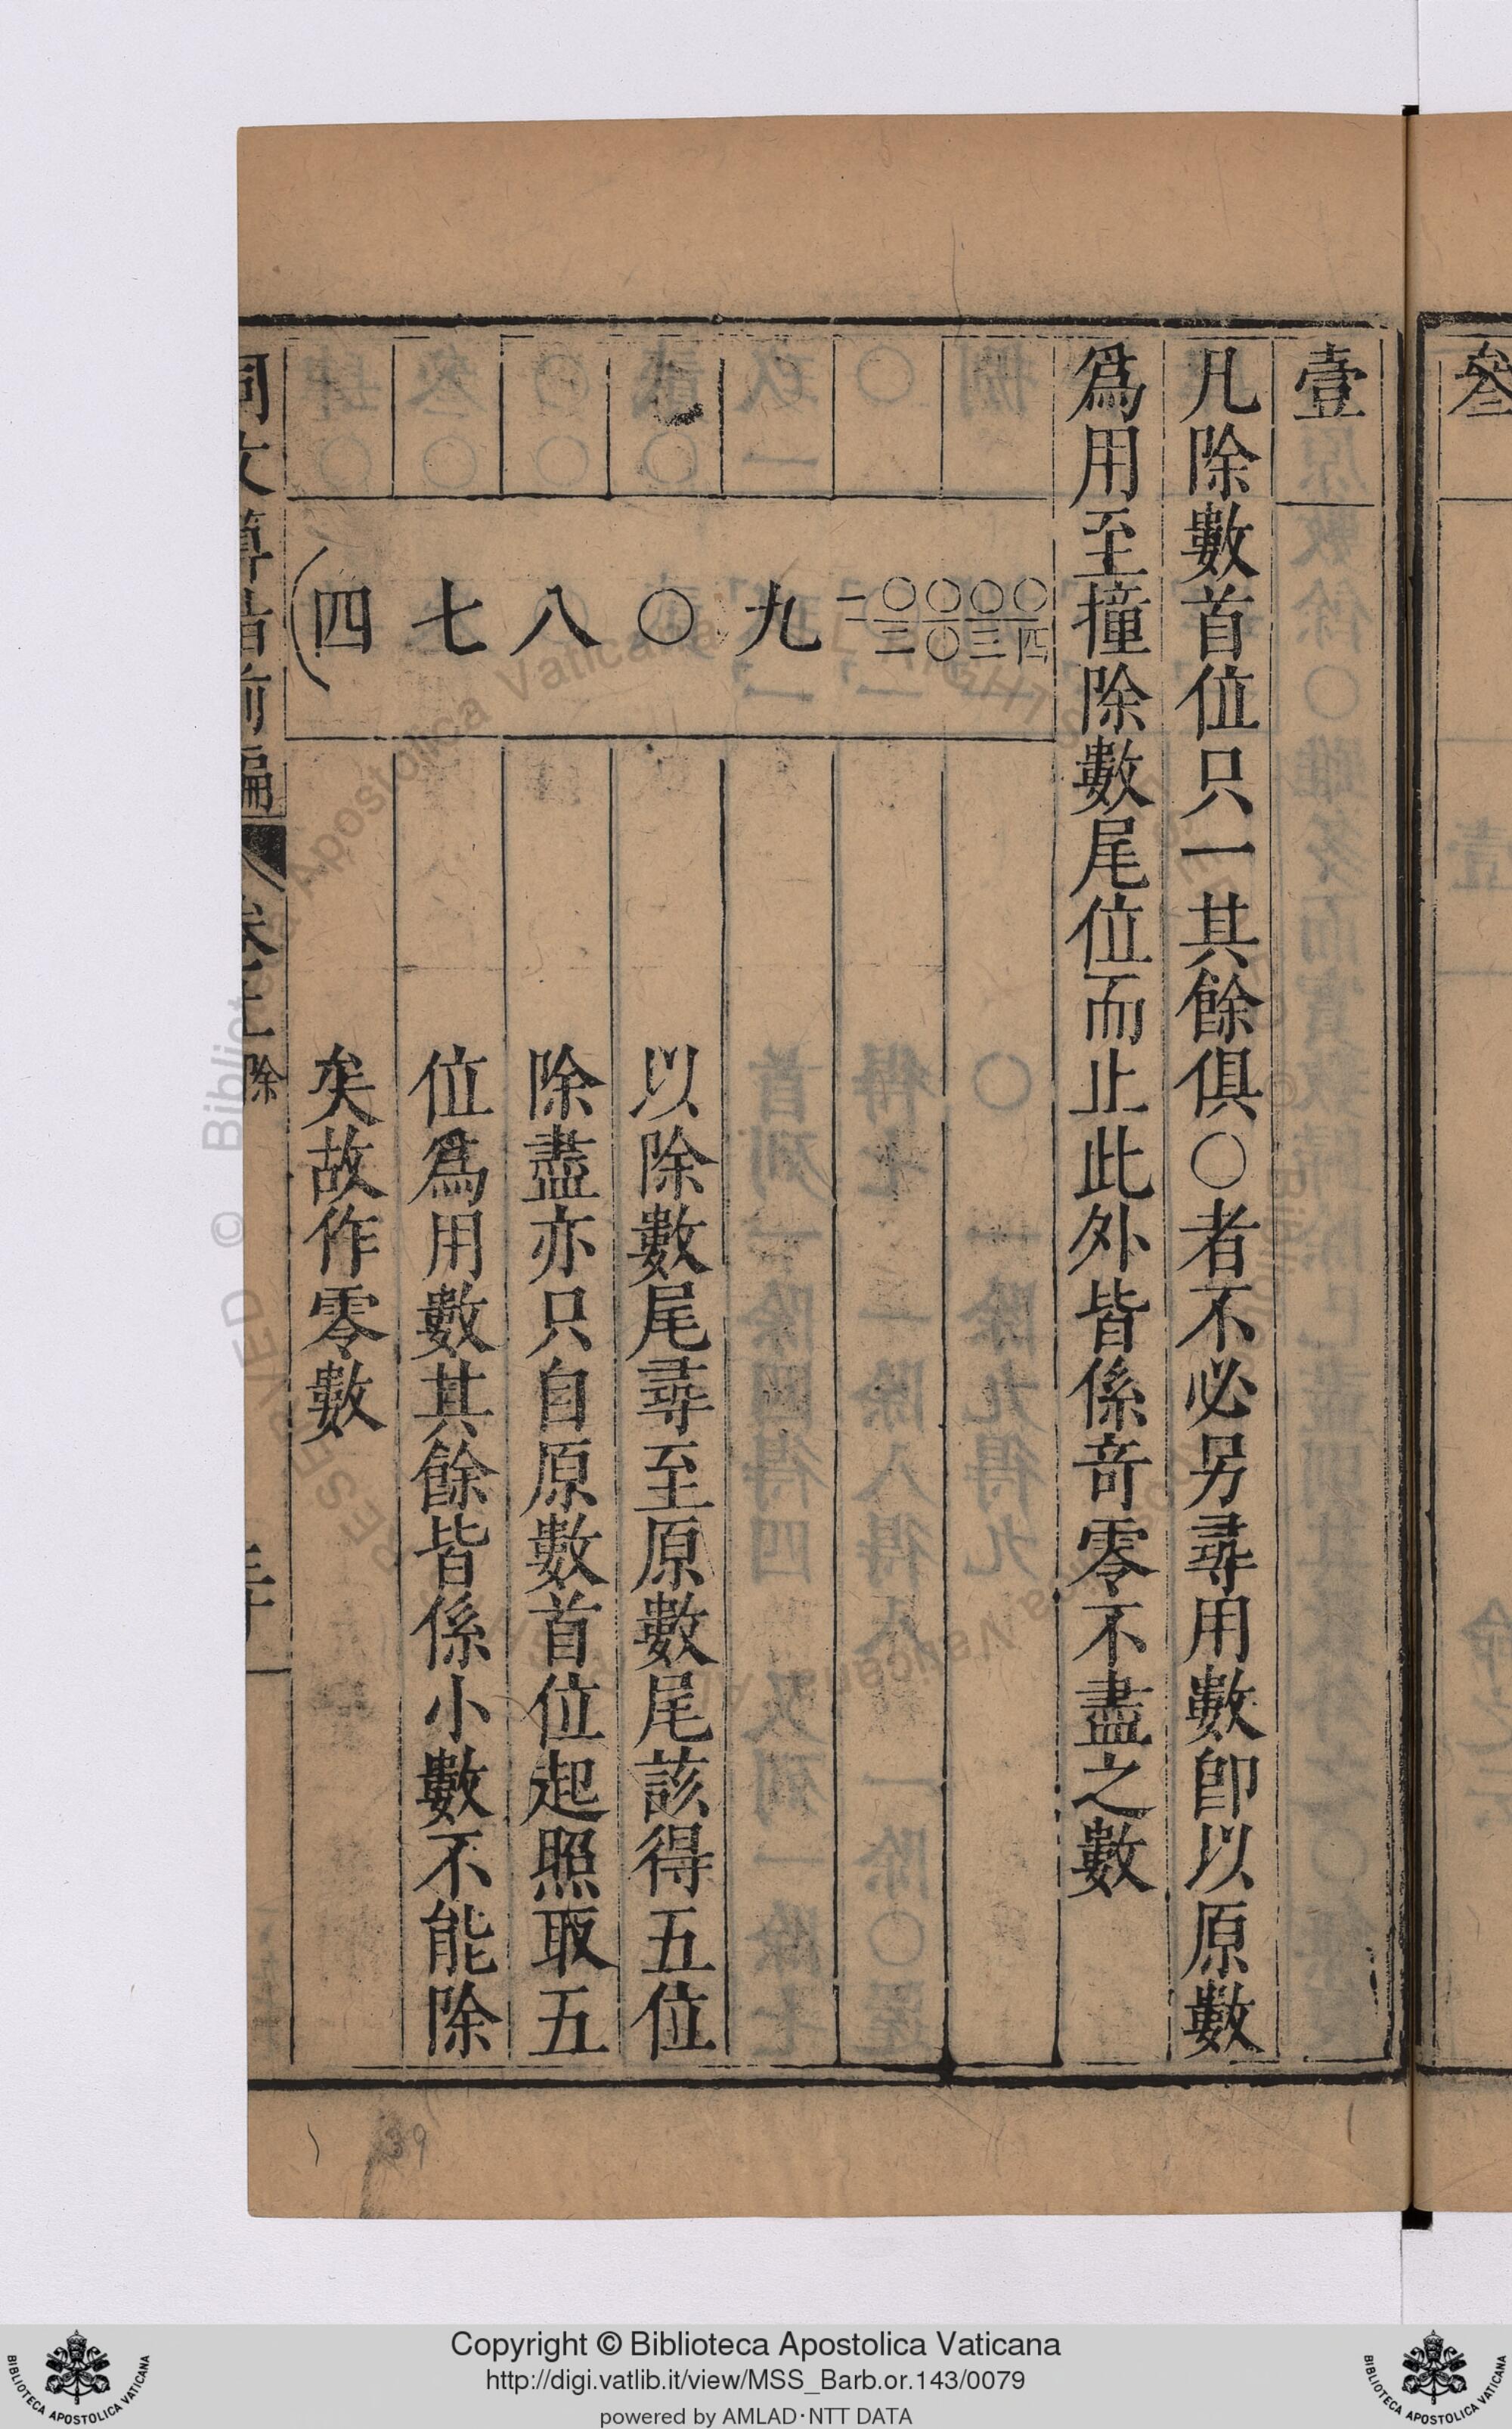 壹
凡除數首位只一其餘俱〇者不必另尋用數卽以原數
爲用至撞除數尾位而止此外皆係竒零不盡之數
四 七 八 〇 九 一 〇二 〇〇 〇三 〇四
以除數尾尋至原數尾該得五位
除盡亦只自原數首位起照取五
位爲用數其餘皆係小數不能除
矣故作零數
同文算指前編
除
叁
39
© Biblioteca Apostolica Vaticana
Copyright © Biblioteca Apostolica Vaticana
http://digi.vatlib.it/view/MSS_Barb.or.143/0079
powered by AMLAD·NTT DATA
BIBLIOTECA APOSTOLICA VATICANA
BIBLIOTECA APOSTOLICA VATICANA